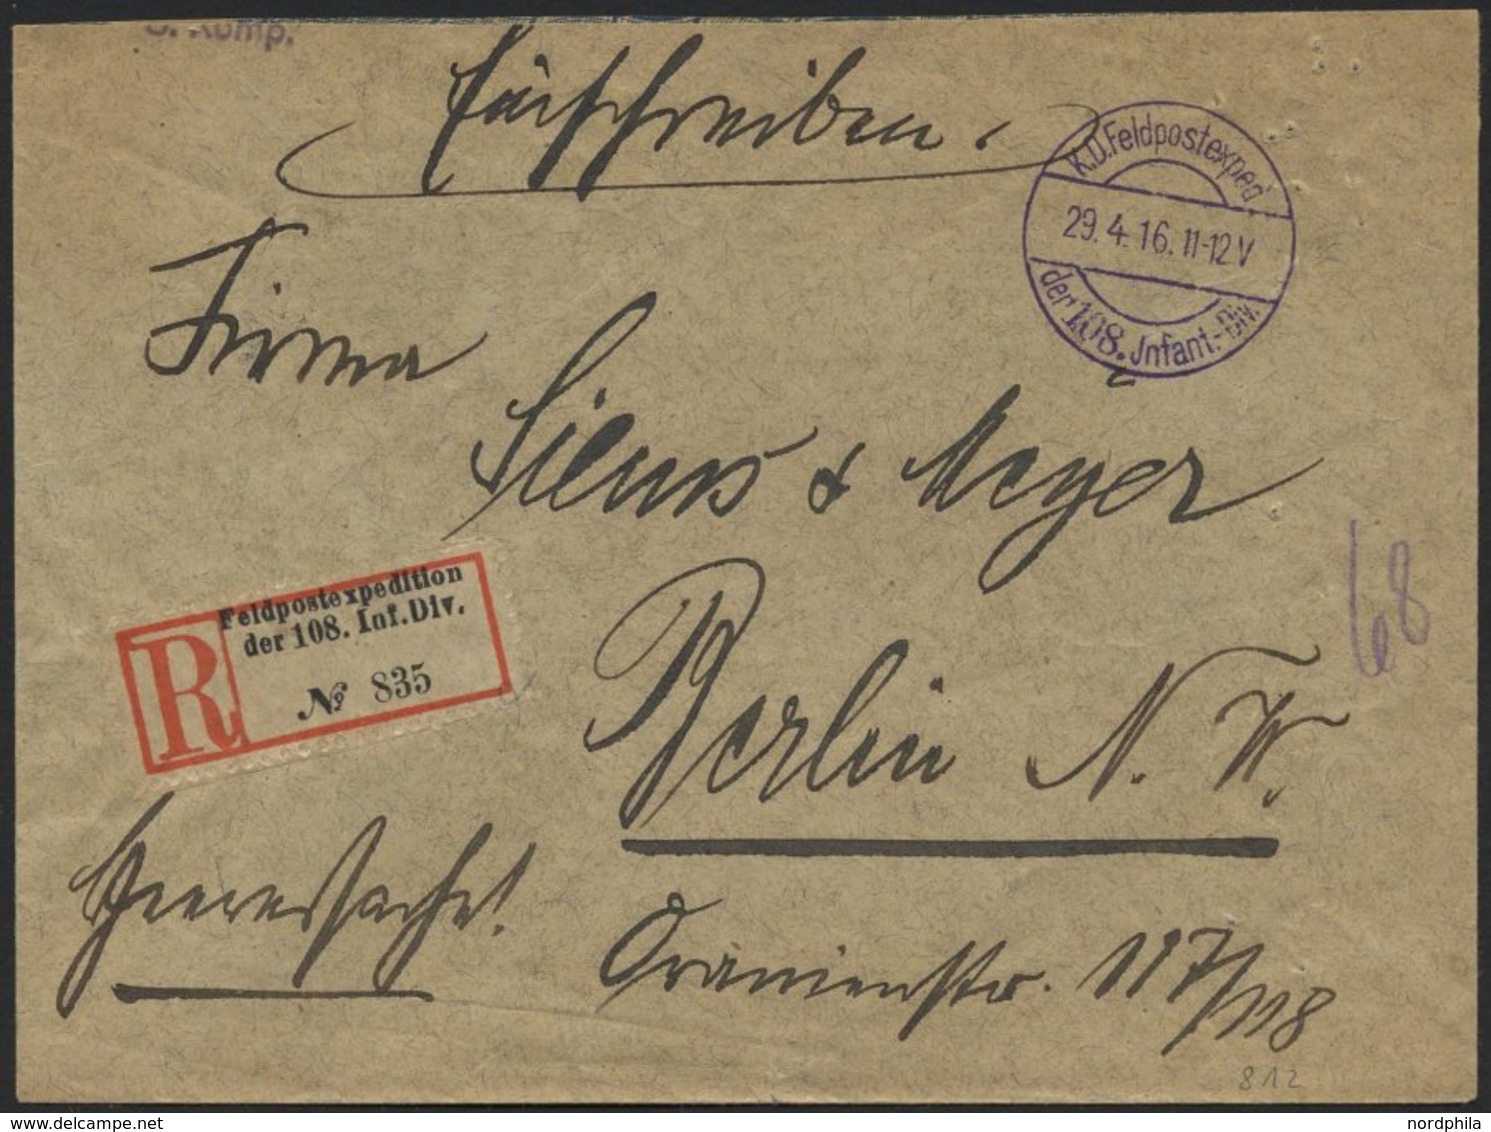 Komp.
Einschreiben.
K.D. Feldpostexped.
29.4.16.11-12V
der 108. Jnfant.-Div.
Firma
& Meyer
Feldpostexpedition
der 108. Inf. Div.
R
№ 835
68
Berlin N. W.
Heeressache!
Oranienstr. 117/118
812
www.delcampe.net
nordphila